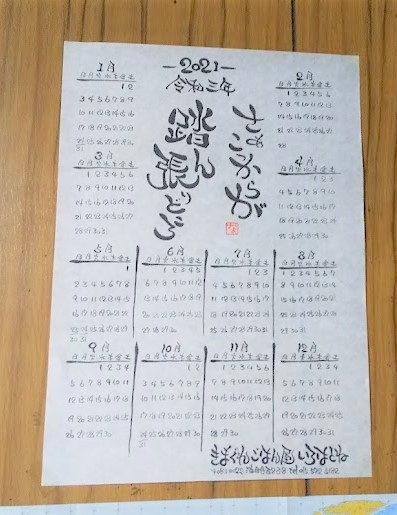 -2021-
令和三年
さぁ
ここからが
踏ん
張りどころ
1月
日月火水木金土
1 2
3 4 5 6 7 8 9
10 11 12 13 14 15 16
17 18 19 20 21 22 23
24 25 26 27 28 29 30
31
2月
日月火水木金土
1 2 3 4 5 6
7 8 9 10 11 12 13
14 15 16 17 18 19 20
21 22 23 24 25 26 27
28
3月
日月火水木金土
1 2 3 4 5 6
7 8 9 10 11 12 13
14 15 16 17 18 19 20
21 22 23 24 25 26 27
28 29 30 31
4月
日月火水木金土
1 2 3
4 5 6 7 8 9 10
11 12 13 14 15 16 17
18 19 20 21 22 23 24
25 26 27 28 29 30
5月
日月火水木金土
1
2 3 4 5 6 7 8
9 10 11 12 13 14 15
16 17 18 19 20 21 22
23 24 25 26 27 28 29
30 31
6月
日月火水木金土
1 2 3 4 5
6 7 8 9 10 11 12
13 14 15 16 17 18 19
20 21 22 23 24 25 26
27 28 29 30
7月
日月火水木金土
1 2 3
4 5 6 7 8 9 10
11 12 13 14 15 16 17
18 19 20 21 22 23 24
25 26 27 28 29 30 31
8月
日月火水木金土
1 2 3 4 5 6 7
8 9 10 11 12 13 14
15 16 17 18 19 20 21
22 23 24 25 26 27 28
29 30 31
9月
日月火水木金土
1 2 3 4
5 6 7 8 9 10 11
12 13 14 15 16 17 18
19 20 21 22 23 24 25
26 27 28 29 30
10月
日月火水木金土
1 2
3 4 5 6 7 8 9
10 11 12 13 14 15 16
17 18 19 20 21 22 23
24 25 26 27 28 29 30
31
11月
日月火水木金土
1 2 3 4 5 6
7 8 9 10 11 12 13
14 15 16 17 18 19 20
21 22 23 24 25 26 27
28 29 30
12月
日月火水木金土
1 2 3 4
5 6 7 8 9 10 11
12 13 14 15 16 17 18
19 20 21 22 23 24 25
26 27 28 29 30 31
きまぐれごはん屋